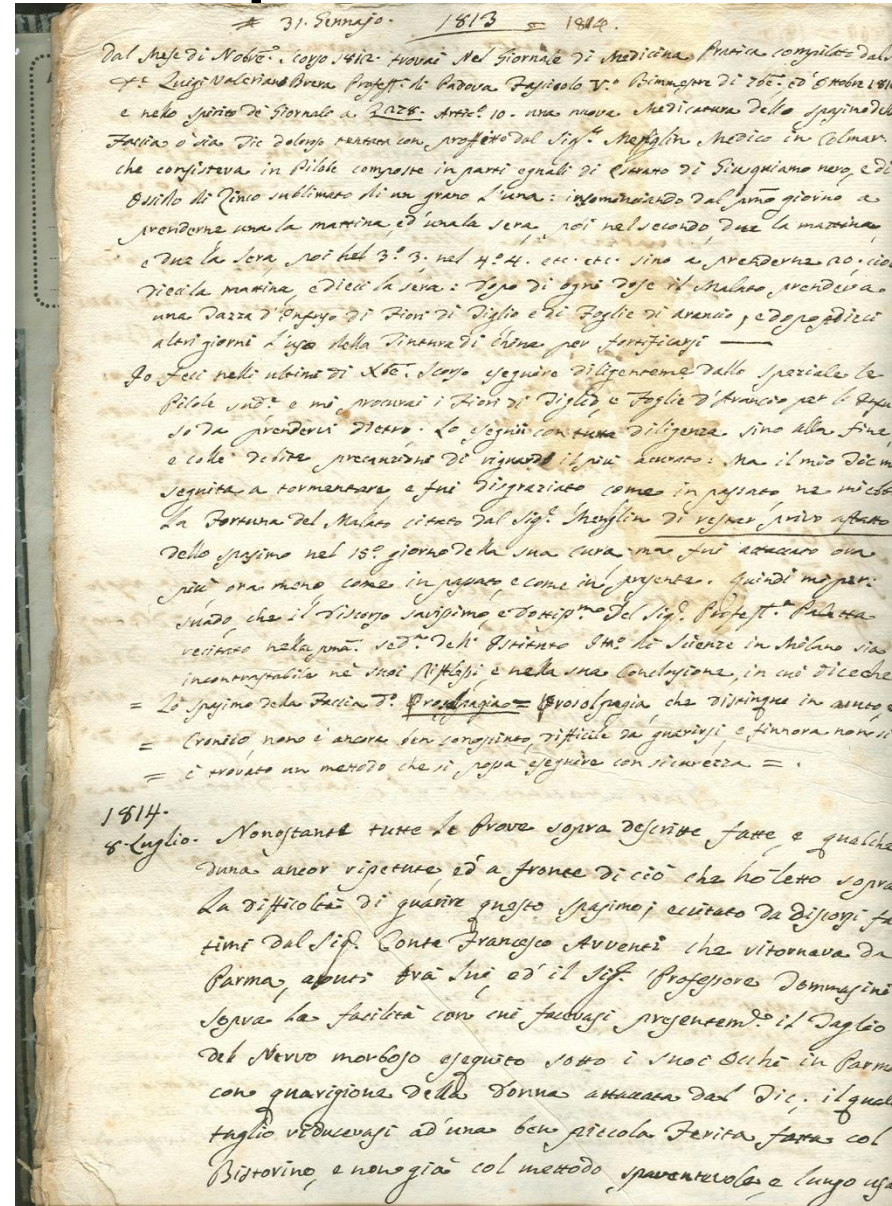 31. Gennajo. 1813 = 1814.
Dal Mese di Nobre. Scorso 1812. trovai nel Giornale di Medicina Pratica compilato dal
Luigi Valeriano Brera Profess. di Padova Fascicolo V.o Bimmestre di 7bre, ed Ottobre 181
e nello spirito de Giornali a 278. Artic.o 10. una nuova Medicatura dello spasimo del
Faccia o sia Tic doloroso tentata con proffitto dal Sig.r Meglin Medico in Colmar
che consisteva in Pilole composte in parti eguali di Estratto di Giusquiamo nero, e di
Ossido di Zinco sublimato di un grano l'una: incominciando dal pmo giorno a
prenderne una la mattina, ed una la sera, poi nel secondo, due la mattina,
e due la sera, poi nel 3.o 3. nel 4.o 4. etc. etc. sino a prenderne 20. cioè
dieci la mattina, e dieci la sera: Dopo di ogni dose il Malato prendeva
una Tazza d'Infuso di Fiori di Tiglio e di Foglie di arancio, e dopo dieci
altri giorni l'uso della Tintura di China per fortificarsi
Io feci nelli ultimi di Xbre. Scorso eseguire diligenteme. dallo speziale le
Pilole sud.e e mi procurai i Fiori di Tiglio, e Foglie d'Arancio per le Infu
so da prendervi dietro. Lo eseguii con tutta diligenza sino alla fine
e colle debite precauzioni di riguardi il più accurato: Ma il mio Tic m
seguita a tormentare, e fui disgraziato come in passato, ne mi ebb
La Fortuna del Malato citato dal Sig.r Menglin di restar privo affatto
dello spasimo nel 15.o giorno della sua cura ma fui attaccato ora
più ora meno come in passato, e come in presente. Quindi mi per:
suado, che il Discorso savissimo, e dottiss.mo Del Sig.r Profess.r Paletta
recitato nella pma. sed.a dell' Istituto Itno. di Scienze in Milano sia
incontrastabile ne suoi Riflessi, e nella sua Conclusione, in cui dice che
= Lo spasimo della Faccia d.o Prosopalgia, che distingue in acuto, e
= Cronico, none è ancora ben conosciuto, difficile da guarirsi, e finnora non si
= è trovato un metodo che si possa eseguire con sicurezza = .
1814.
8. Luglio. Nonostante tutte le Prove sopra descritte fatte, e qualche
duna ancor ripetute, ed a fronte di ciò che ho letto sopra
La difficoltà di guarire questo spasimo; eccitato da discorsi fa
timi dal Sig. Conte Francesco Avventi che ritornava da
Parma, avuti trà lui, ed il Sig. Professore Tommasini
sopra la facilità con cui facevasi presentem.e il Taglio
del Nervo morboso eseguito sotto i suoi Occhi in Parma
con guarigione della Donna attaccata dal Tic; il qual
taglio riducevasi ad una ben piccola Ferita fatta col
Bistorino, e non già col metodo spaventevole e lungo usa